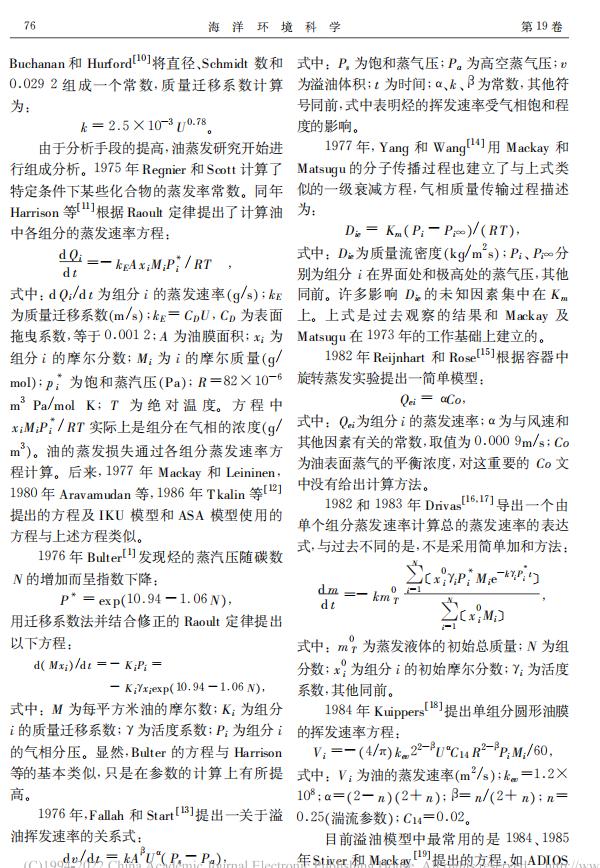 76
海洋环境科学
第19卷
Buchanan 和 Hurford[10]将直径、Schmidt 数和
0.029 2 组成一个常数，质量迁移系数计算
为：
k = 2.5×10⁻³ U^0.78。
由于分析手段的提高，油蒸发研究开始进
行组成分析。1975 年 Regnier 和 Scott 计算了
特定条件下某些化合物的蒸发率常数。同年
Harrison 等[11]根据 Raoult 定律提出了计算油
中各组分的蒸发速率方程：
dQi/dt = - kE A xi Mi Pi* / RT ，
式中：d Qi/dt 为组分 i 的蒸发速率(g/s)；kE
为质量迁移系数(m/s)；kE = CDU，CD 为表面
拖曳系数，等于 0.001 2；A 为油膜面积；xi 为
组分 i 的摩尔分数；Mi 为 i 的摩尔质量(g/
mol)；pi* 为饱和蒸汽压(Pa)；R=82×10⁻⁶
m³ Pa/mol K；T 为绝对温度。方程中
xiMiPi*/RT 实际上是组分在气相的浓度(g/
m³)。油的蒸发损失通过各组分蒸发速率方
程计算。后来，1977 年 Mackay 和 Leininen，
1980 年 Aravamudan 等，1986 年 Tkalin 等[12]
提出的方程及 IKU 模型和 ASA 模型使用的
方程与上述方程类似。
1976 年 Bulter[1]发现烃的蒸汽压随碳数
N 的增加而呈指数下降：
P* = exp(10.94-1.06 N)，
用迁移系数法并结合修正的 Raoult 定律提出
以下方程：
d( Mxi)/dt = - KiPi =
- Kiγxiexp(10.94-1.06 N)，
式中：M 为每平方米油的摩尔数；Ki 为组分
i 的质量迁移系数；γ 为活度系数；Pi 为组分 i
的气相分压。显然，Bulter 的方程与 Harrison
等的基本类似，只是在参数的计算上有所提
高。
1976 年，Fallah 和 Start[13]提出一关于溢
油挥发速率的关系式：
dv/dt = kA^β U^α( Ps - Pa)，
式中：Ps 为饱和蒸气压；Pa 为高空蒸气压；v
为溢油体积；t 为时间；α、k 、β 为常数，其他符
号同前，式中表明烃的挥发速率受气相饱和程
度的影响。
1977 年，Yang 和 Wang[14]用 Mackay 和
Matsugu 的分子传播过程也建立了与上式类
似的一级衰减方程，气相质量传输过程描述
为：
Die = Km( Pi - Pi∞)/( RT)，
式中：Die为质量流密度(kg/m²s)；Pi、Pi∞分
别为组分 i 在界面处和极高处的蒸气压，其他
同前。许多影响 Die 的未知因素集中在 Km
上。上式是过去观察的结果和 Mackay 及
Matsugu 在 1973 年的工作基础上建立的。
1982 年 Reijnhart 和 Rose[15]根据容器中
旋转蒸发实验提出一简单模型：
Qei = αCo，
式中：Qei为组分 i 的蒸发速率；α 为与风速和
其他因素有关的常数，取值为 0.000 9m/s；Co
为油表面蒸气的平衡浓度，对这重要的 Co 文
中没有给出计算方法。
1982 和 1983 年 Drivas[16,17]导出一个由
单个组分蒸发速率计算总的蒸发速率的表达
式，与过去不同的是，不是采用简单加和方法：
dm/dt = - km⁰T ∑(i=1→N)〔x⁰iγiPi*Mie^(-kγiPi*t)〕 / ∑(i=1→N)〔x⁰iMi〕，
式中：m⁰T 为蒸发液体的初始总质量；N 为组
分数；x⁰i 为组分 i 的初始摩尔分数；γi 为活度
系数，其他同前。
1984 年 Kuippers[18]提出单组分圆形油膜
的挥发速率方程：
Vi = -(4/π)kev2^(2-β)U^αC14R^(2-β)PiMi/60，
式中：Vi 为油的蒸发速率(m²/s)；kev=1.2×
10⁸；α=(2-n)(2+n)；β=n/(2+n)；n=
0.25(湍流参数)；C14=0.02。
目前溢油模型中最常用的是 1984、1985
年 Stiver 和 Mackay[19]提出的方程，如 ADIOS